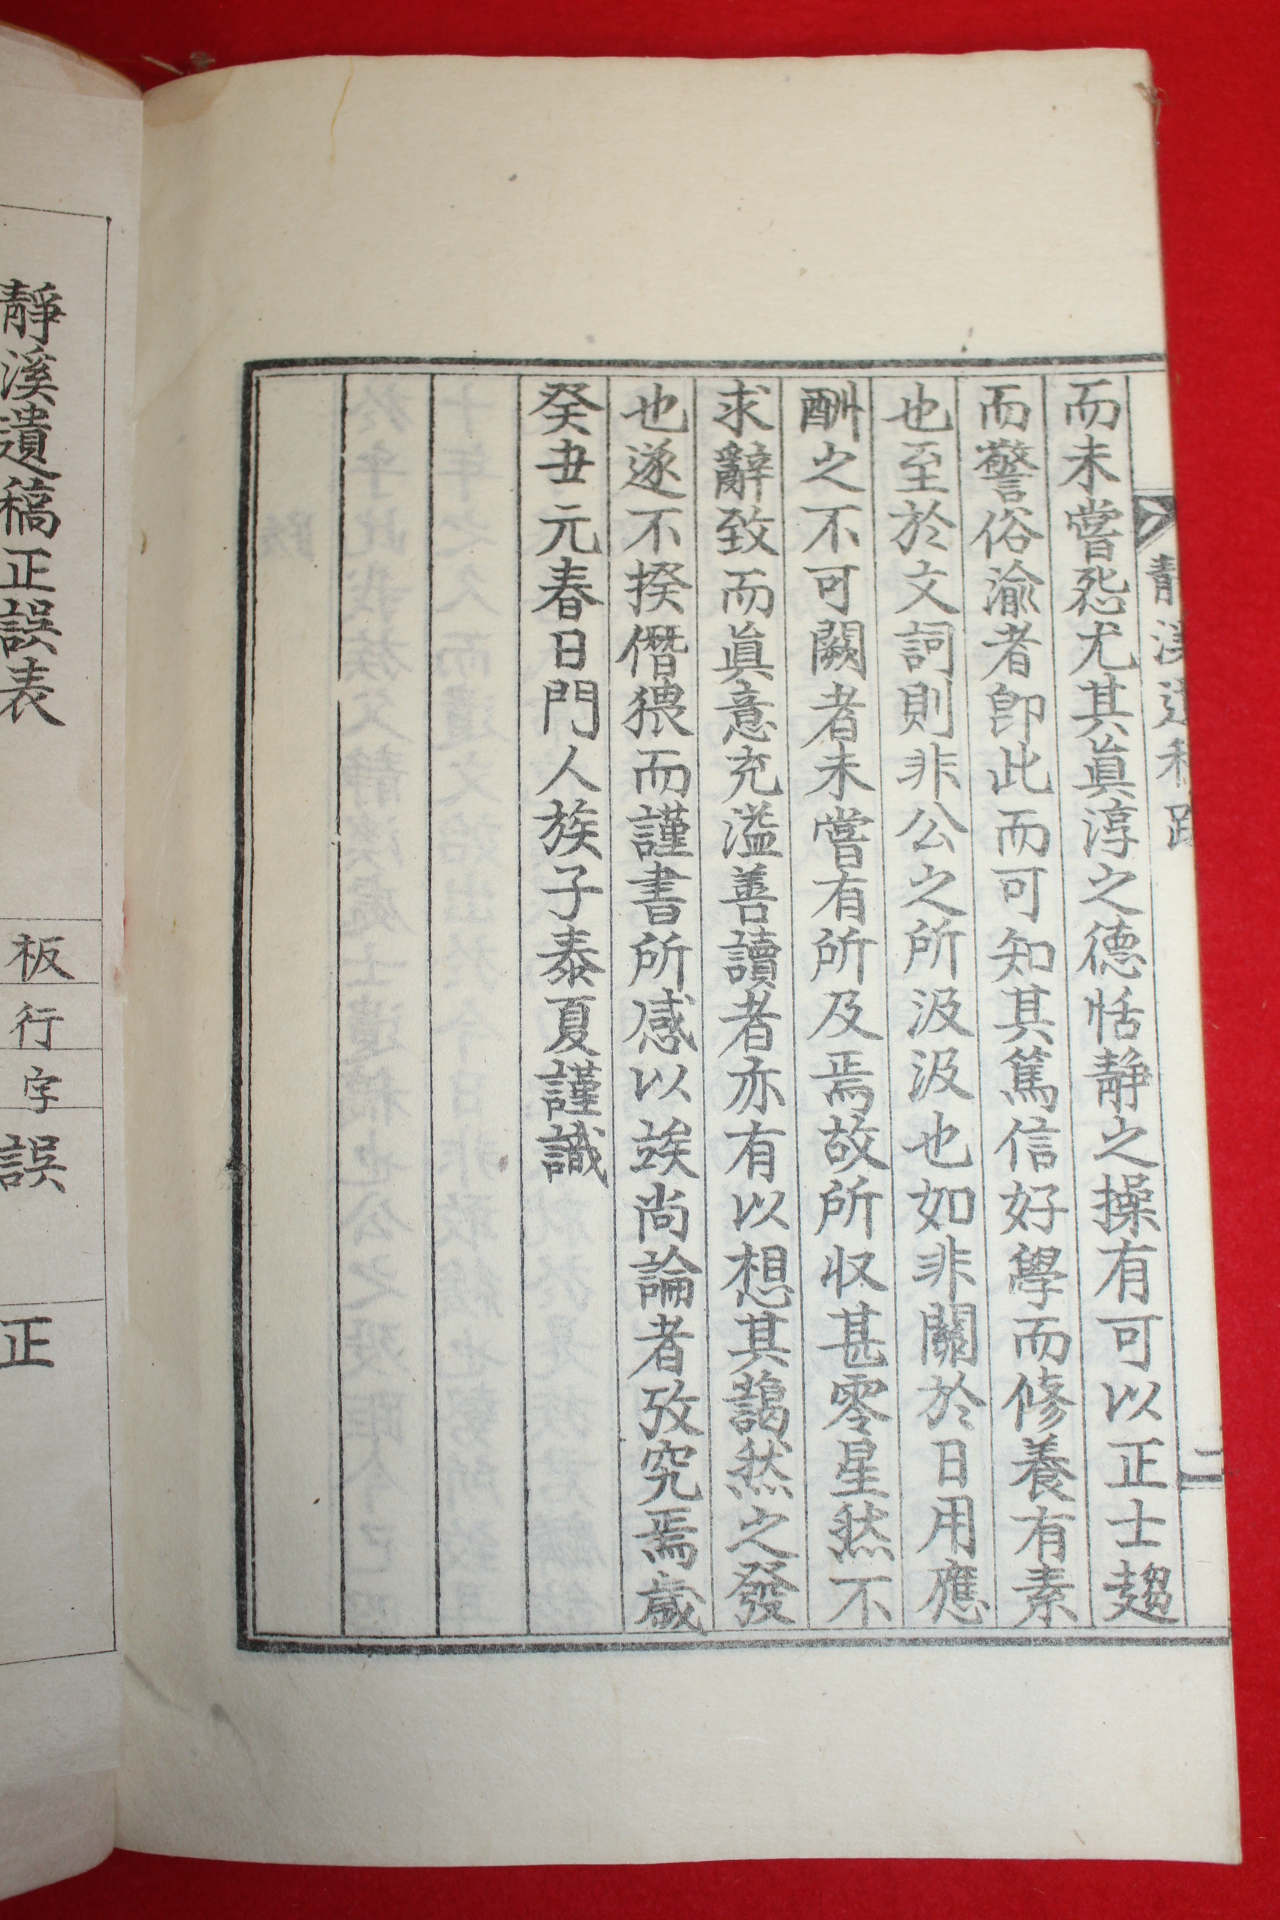 靜溪遺稿跋 二
而未嘗怨尤其眞淳之德恬靜之操有可以正士趨
而警俗渝者卽此而可知其篤信好學而修養有素
也至於文詞則非公之所汲汲也如非關於日用應
酬之不可闕者未嘗有所及焉故所收甚零星然不
求辭致而眞意充溢善讀者亦有以想其藹然之發
也遂不揆僭猥而謹書所感以竢尚論者攷究焉歲
癸丑元春日門人族子泰夏謹識
靜溪遺稿正誤表
板 行 字 誤 正